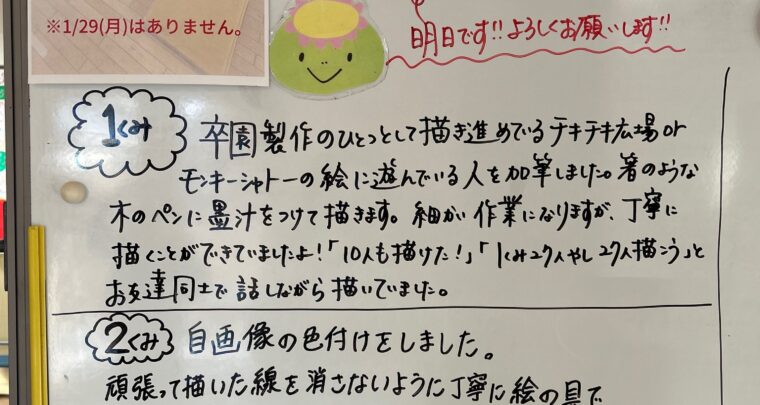 ※1/29(月)はありません。
明日です!!よろしくお願いします!!
1くみ
卒園製作のひとつとして描き進めているチキチキ広場or
モンキーシャトーの絵に遊んでいる人を加筆しました。箸のような
木のペンに墨汁をつけて描きます。細かい作業になりますが、丁寧に
描くことができていましたよ!「10人も描けた!」「1くみ27人やし27人描こう」と
お友達同士で話しながら描いていました。
2くみ
自画像の色付けをしました。
頑張って描いた線を消さないように丁寧に絵の具で